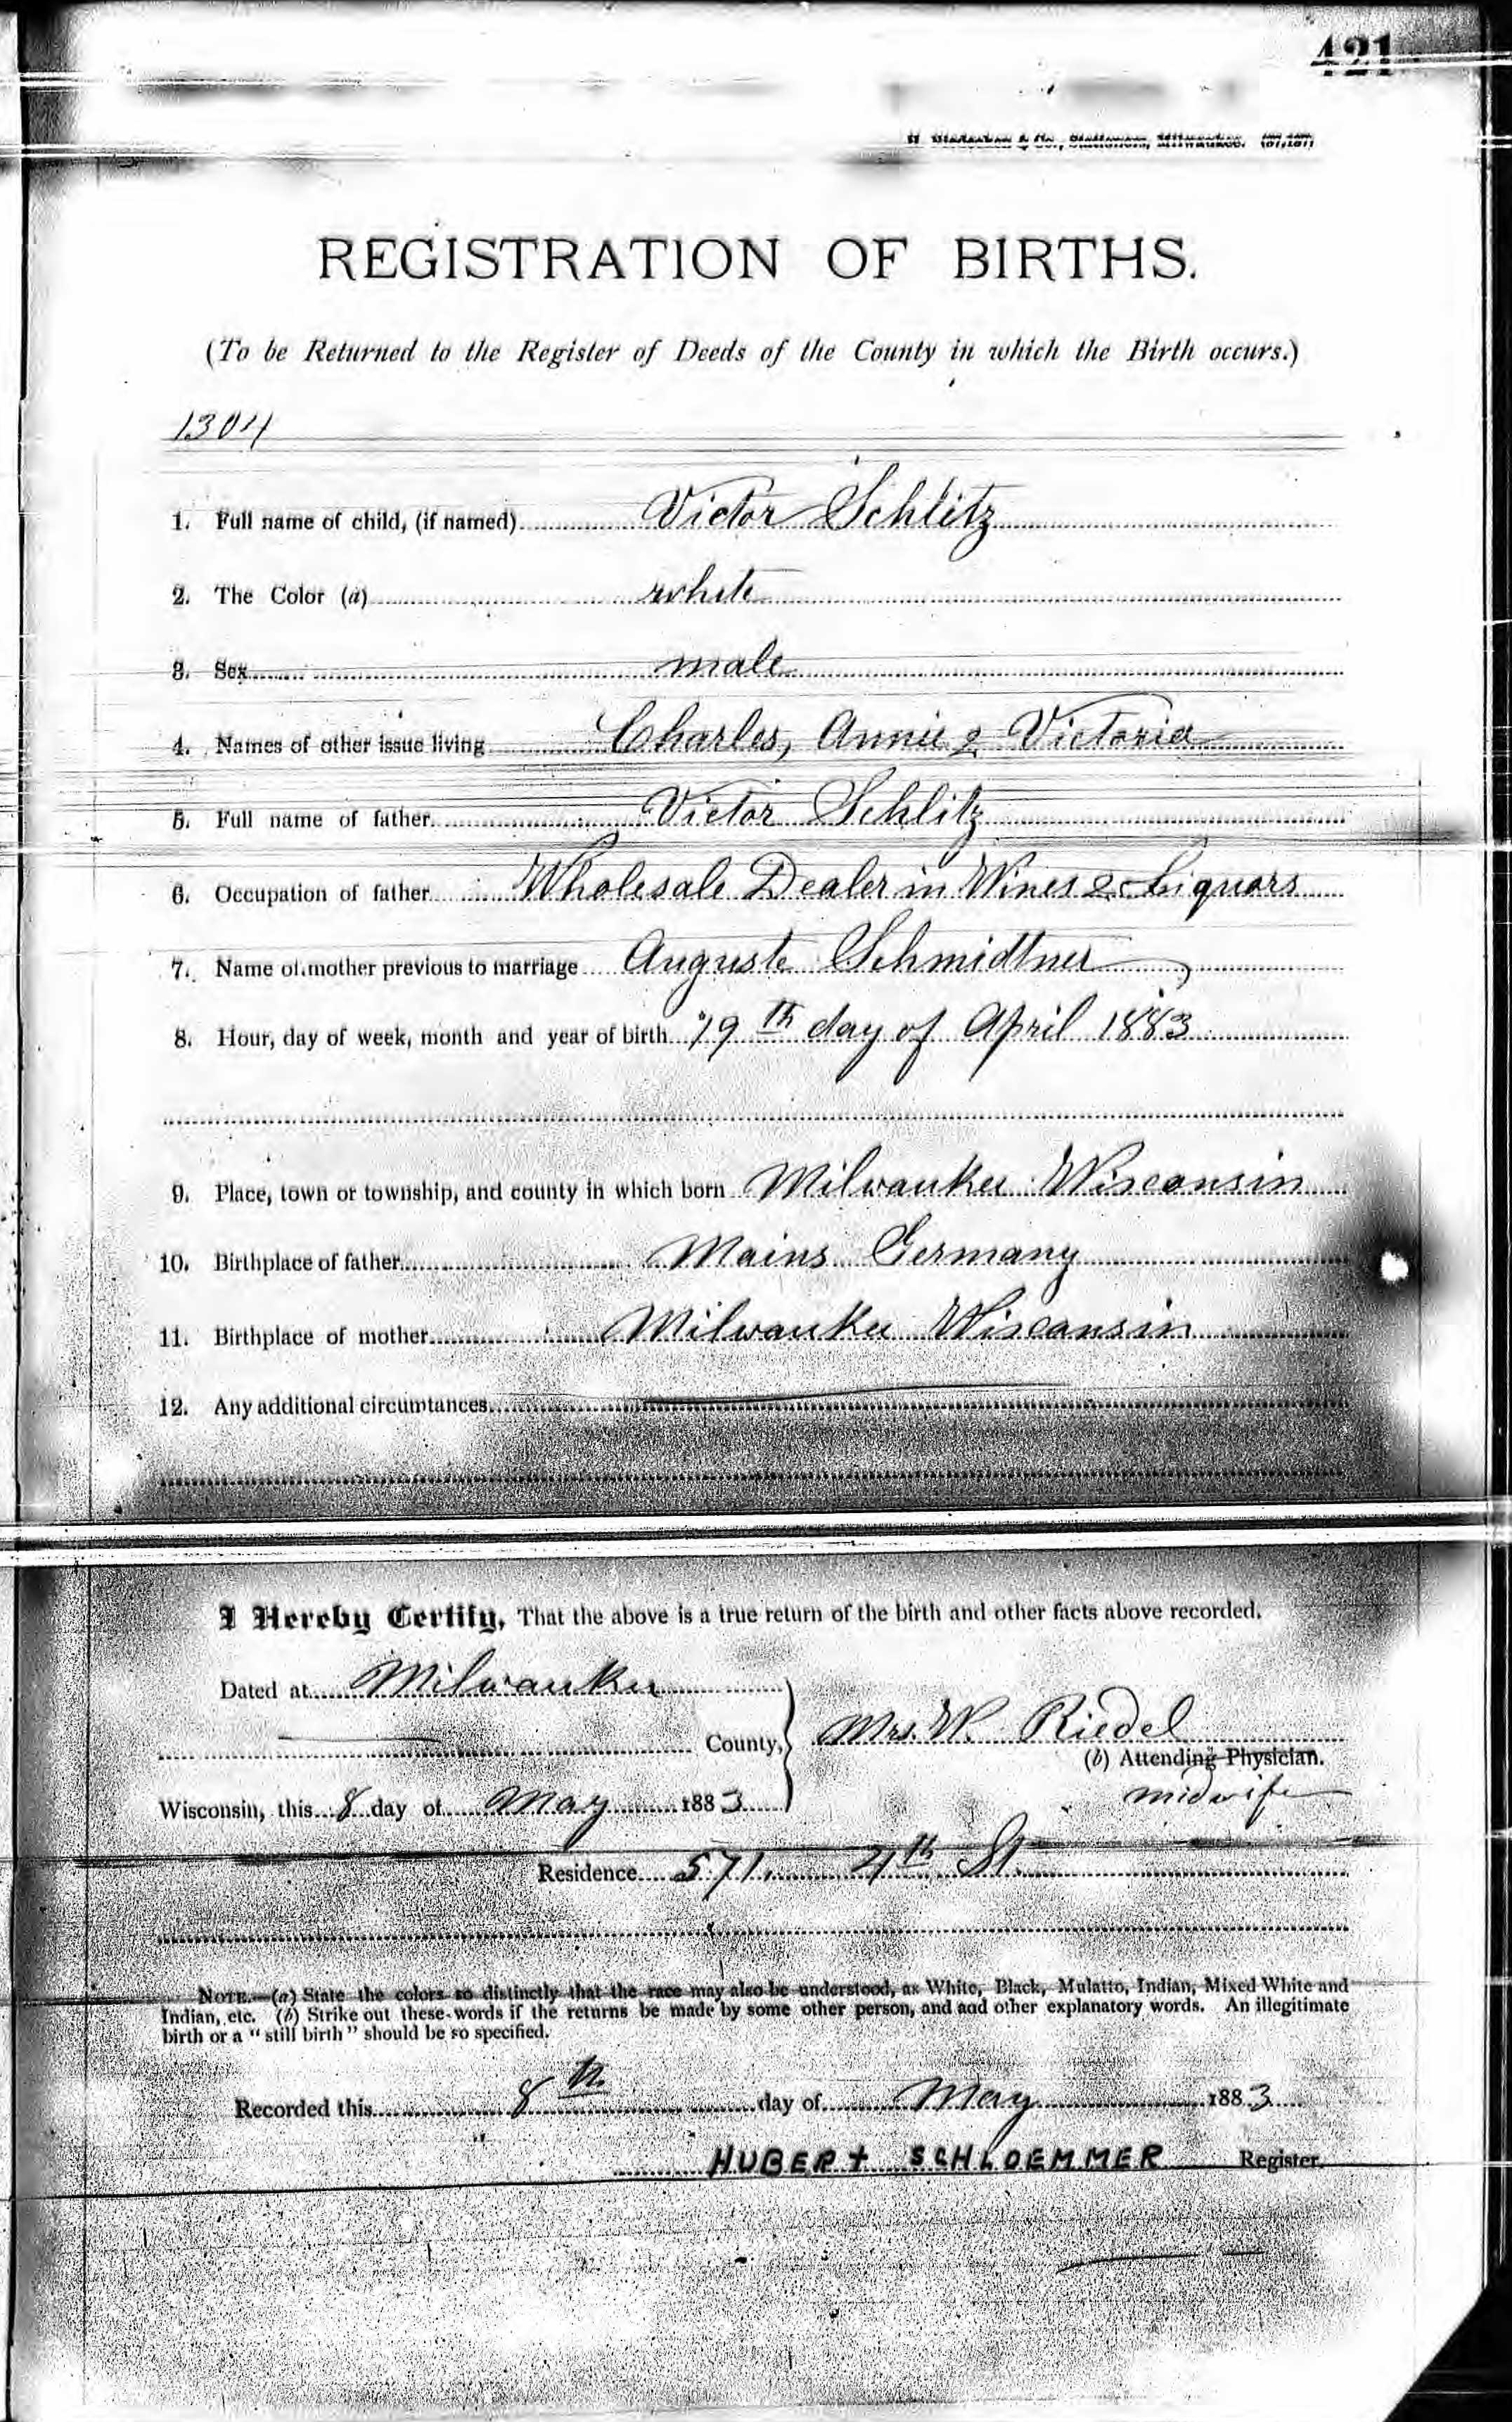 421
& Co., Stationers, Milwaukee.
REGISTRATION OF BIRTHS.
(To be Returned to the Register of Deeds of the County in which the Birth occurs.)
1304
1. Full name of child, (if named) Victor Schlitz
2. The Color (a) white
3. Sex male
4. Names of other issue living Charles, Annie & Victoria
5. Full name of father. Victor Schlitz
6. Occupation of father Wholesale Dealer in Wines & Liquors
7. Name of mother previous to marriage Auguste Schmidtner
8. Hour, day of week, month and year of birth 19th day of April 1883
9. Place, town or township, and county in which born Milwaukee Wisconsin
10. Birthplace of father Mains Germany
11. Birthplace of mother Milwaukee Wisconsin
12. Any additional circumtances
I Hereby Certify, That the above is a true return of the birth and other facts above recorded.
Dated at Milwaukee
County, Mrs. W. Riedel
(b) Attending Physician.
midwife
Wisconsin, this 8 day of May 1883
Residence 571 4th St.
NOTE.—(a) State the colors so distinctly that the race may also be understood, as White, Black, Mulatto, Indian, Mixed White and
Indian, etc. (b) Strike out these words if the returns be made by some other person, and add other explanatory words. An illegitimate
birth or a "still birth" should be so specified.
Recorded this 8th day of May 1883
HUBERT SCHLOEMMER Register.